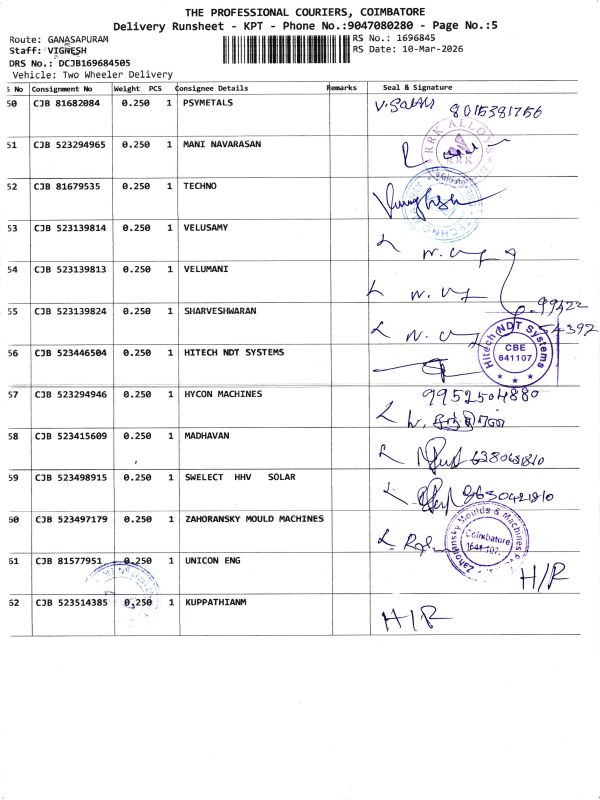 THE PROFESSIONAL COURIERS, COIMBATORE
Delivery Runsheet - KPT - Phone No.:9047080280 - Page No.:5
Route: GANASAPURAM
RS No.: 1696845
Staff: VIGNESH
RS Date: 10-Mar-2026
DRS No.: DCJB169684505
Vehicle: Two Wheeler Delivery
S No Consignment No Weight PCS Consignee Details Remarks Seal & Signature
50 CJB 81682084 0.250 1 PSYMETALS 8015381756
RRK ALLOYS
RRK
51 CJB 523294965 0.250 1 MANI NAVARASAN
52 CJB 81679535 0.250 1 TECHNO
53 CJB 523139814 0.250 1 VELUSAMY
54 CJB 523139813 0.250 1 VELUMANI
55 CJB 523139824 0.250 1 SHARVESHWARAN
99522
54392
56 CJB 523446504 0.250 1 HITECH NDT SYSTEMS
Hitech NDT Systems
CBE
641107
57 CJB 523294946 0.250 1 HYCON MACHINES 9952504880
58 CJB 523415609 0.250 1 MADHAVAN
59 CJB 523498915 0.250 1 SWELECT HHV SOLAR
60 CJB 523497179 0.250 1 ZAHORANSKY MOULD MACHINES
Zahoransky Moulds & Machines
Coimbatore
61 CJB 81577951 0.250 1 UNICON ENG H/R
62 CJB 523514385 0.250 1 KUPPATHIANM H/R